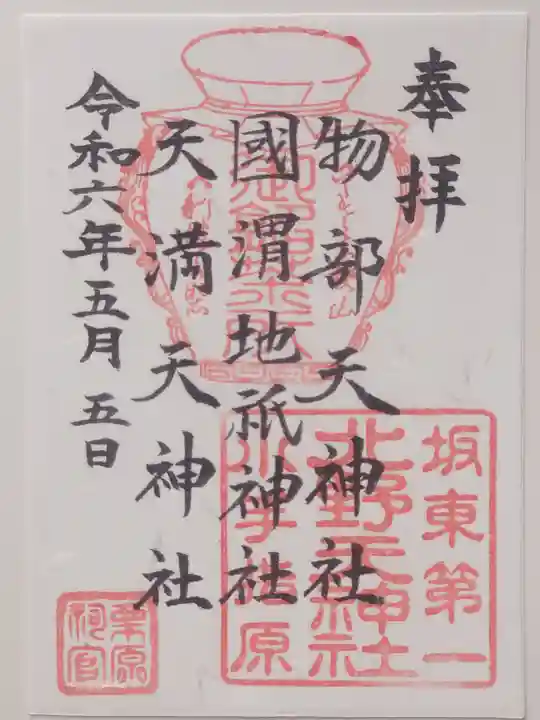 奉拝
物部天神社
國渭地祇神社
天満天神社
令和六年五月五日
坂東第一
北野天神社
栗原
祠官